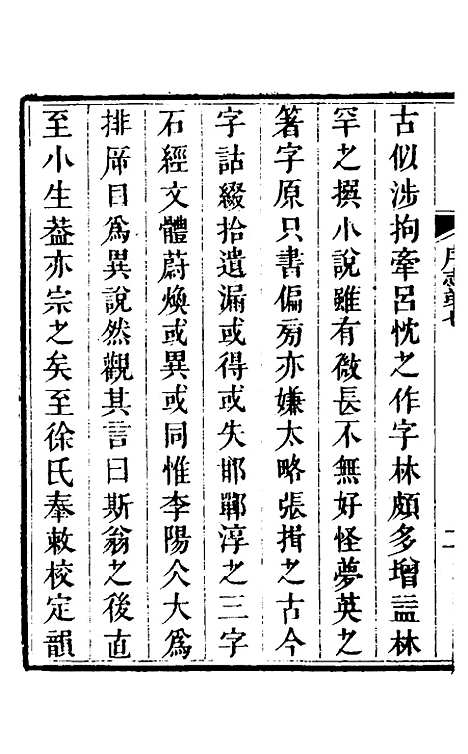 古似涉拘牽呂忱之作字林頗多增益林
罕之撰小說雖有微長不無好怪夢英之
箸字原只書偏旁亦嫌太略張揖之古今
字詁綴拾遺漏或得或失邯鄲淳之三字
石經文體蔚煥或異或同惟李陽仌大爲
排厈目爲異說然觀其言曰斯翁之後直
至小生葢亦宗之矣至徐氏奉敕校定韻
序志弟七
二